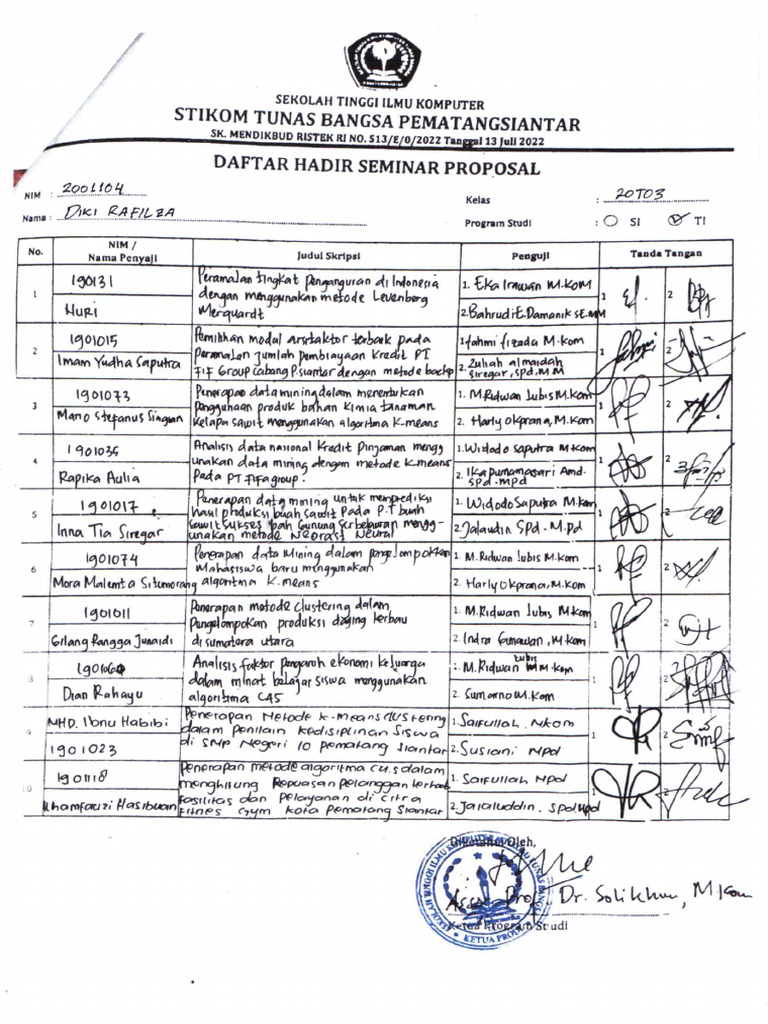 SEKOLAH TINGGI ILMU KOMPUTER
STIKOM TUNAS BANGSA PEMATANGSIANTAR
SK. MENDIKBUD RISTEK RI NO. 513/E/0/2022 Tanggal 13 Juli 2022
DAFTAR HADIR SEMINAR PROPOSAL
NIM : 2001104
Kelas : 20T03
Nama : DIKI RAFILZA
Program Studi : SI TI
No. NIM / Nama Penyaji Judul Skripsi Penguji Tanda Tangan
1 190131 Peramalan tingkat Pengangguran di Indonesia 1. Eka Irawan M.KOM 1 2
Nuri dengan menggunakan metode Levenberg 2. Bahrudi E. Damanik SE.MM
Merquardt
2 1901015 Pemilihan modal arsitaktor terbaik pada 1 fahmi fizada M.kom 1 2
Imam Yudha Saputra Peramalan Jumlah pembiayaan Kredit PT 2. Zuliah almaidah
FIF Group Cabang P.siantar dengan metode backp siregar, spd, M.M
3 1901073 Penerapan data mining dalam menentukan 1. M.Ridwan Lubis M.Kom 1 2
Mario Stefanus Siagian Penggunaan produk bahan kimia tanaman 2. Harly Okprana, M.Kom
Kelapa sawit menggunakan algoritma K-means
4 1901035 Analisis data nasional Kredit Pinjaman mengg 1. Widodo saputra M.kom 1 2
Rapika Aulia unakan data mining dengan metode K-means 2. Ika Purnamasari Amd.
Pada PT FiFa group. spd. mpd
5 1901017 Penerapan data mining untuk memprediksi 1. Widodo Saputra M.Kom 1 2
Inna Tia Siregar hasil produksi buah sawit Pada P.T buah 2. Jalaudin SPd. M.Pd
Sawit Sukses Gunung menggunakan metode
6 1901074 Penerapan data Mining dalam pengelompokkan 1. M.Ridwan Lubis M.Kom 1 2
Mora Malemta Situmorang Mahasiswa baru menggunakan 2. Harly Okprana, M.Kom
algoritma K-means
7 1901011 Penerapan metode clustering dalam 1. M.Ridwan Lubis M.Kom 1 2
Gilang Rangga Junaidi Pengelompokan produksi daging kerbau 2. Indra Gunawan, M.Kom
di sumatera utara
8 190106 Analisis faktor pengaruh ekonomi keluarga 1. M.Ridwan lubis M.Kom 1 2
Dian Rahayu dalam minat belajar siswa menggunakan 2. Sumarno M.Kom
algoritma C45
9 MHD. Ibnu Habibi Penerapan Metode K-means clustering 1. Saifullah. Mkom 1 2
1901023 dalam Penilain Kedisiplinan Siswa 2. Susiani Mpd
di SMP Negeri 10 pematang Siantar
10 1901118 Penerapan metode algoritma C4.5 dalam 1. Saifullah Mpd 1 2
Khamfauzi Hasibuan menghitung Kepuasan pelanggan terhad 2. Jalaluddin. SPd.Mpd
fasilitas dan Pelayanan di citra
Fitnes Gym kota Pematang Siantar
Diketahui Oleh,
Assoc. Prof. Dr. Solikhun, M.Kom
Ketua Program Studi
KETUA PRODI